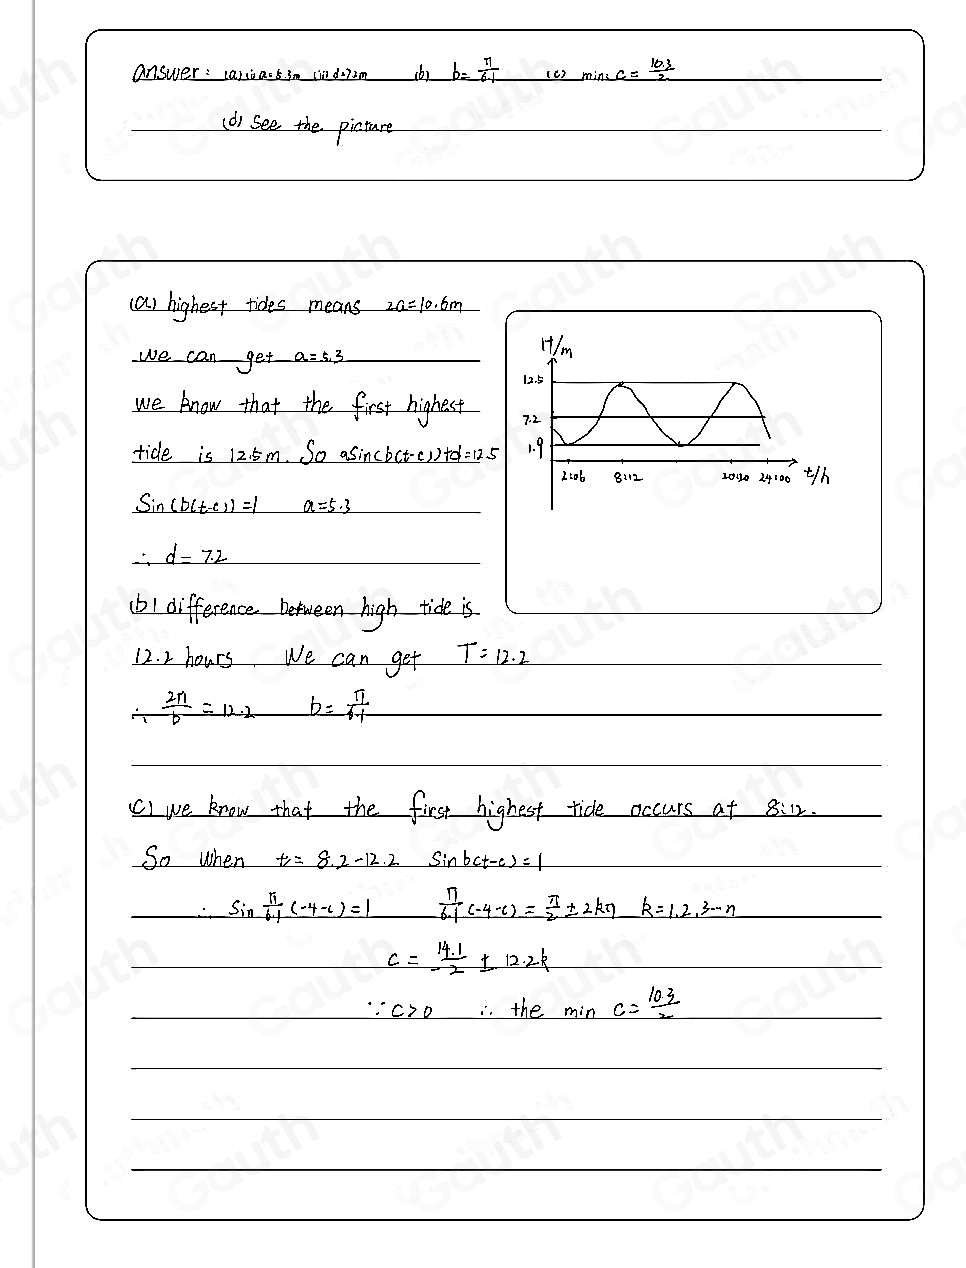 Answer: (a) (i) a=5.3m (ii) d=7.2m (b) b=π/6.1 (c) min: c=10.3/2
(d) See the picture
(a) highest tides means 2a=10.6m
We can get a=5.3
We know that the first highest
tide is 12.5m. So asin(b(t-c))+d=12.5
Sin(b(t-c))=1 a=5.3
∴ d=7.2
(b) difference between high tide is
12.2 hours. We can get T=12.2
∴ 2π/b = 12.2 b=π/6.1
H/m
12.5
7.2
1.9
2:06 8:12 24:00 t/h
(c) we know that the first highest tide occurs at 8:12.
So When t= 8.2-12.2 Sin b(t-c)=1
∴ Sin π/6.1 (-4-c)=1 π/6.1 (-4-c) = π/2 ± 2kπ k=1,2,3...n
c = 14.1/-2 ± 12.2k
∵ c>0 ∴ the min c=10.3/2
Gauth